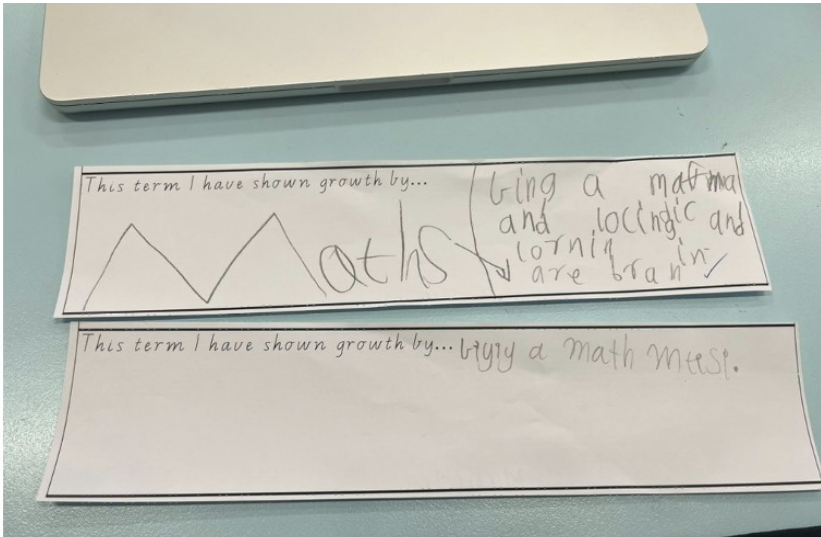 This term I have shown growth by...
Maths
bing a matma
and locingic and
lornin in
are bran
This term I have shown growth by... biyiy a math